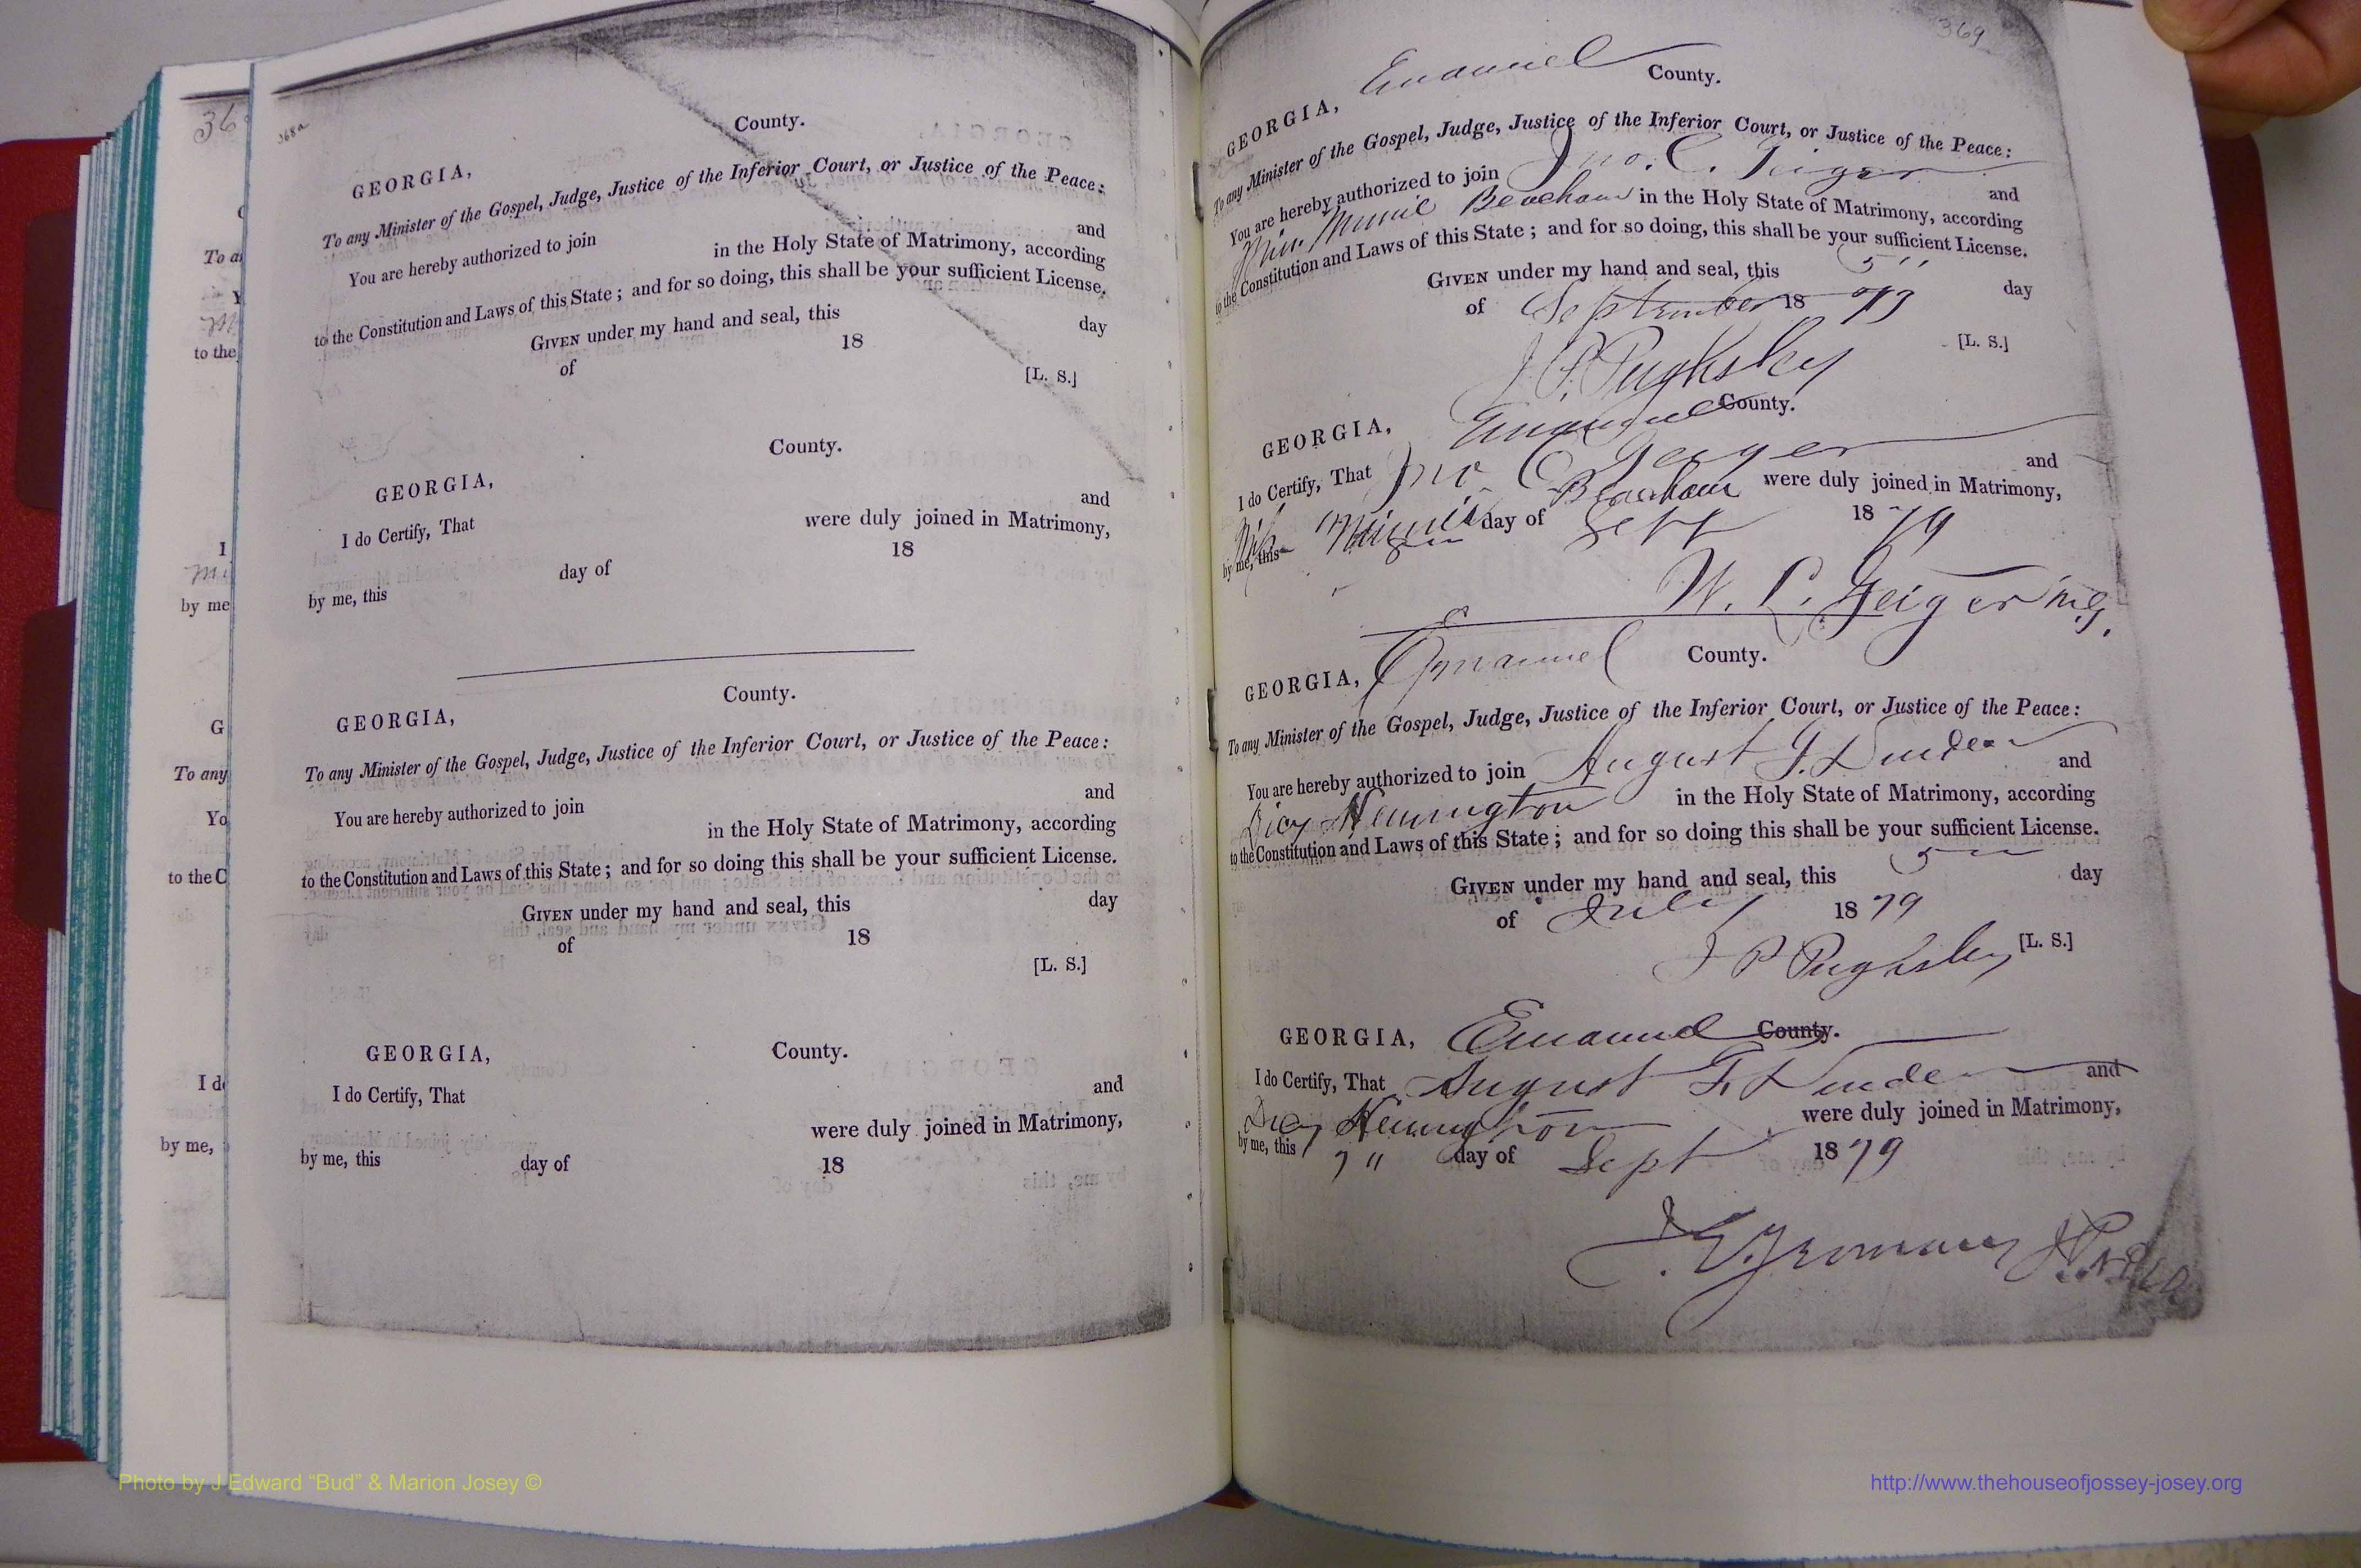 36
To a
Y
to the
I
by me
G
To any
Yo
to the C
I d
by me,
368a
County.
GEORGIA,
To any Minister of the Gospel, Judge, Justice of the Inferior Court, or Justice of the Peace:
You are hereby authorized to join and
in the Holy State of Matrimony, according
to the Constitution and Laws of this State; and for so doing, this shall be your sufficient License.
GIVEN under my hand and seal, this day
of 18
[L. S.]
County.
GEORGIA,
I do Certify, That and
were duly joined in Matrimony,
by me, this day of 18
County.
GEORGIA,
To any Minister of the Gospel, Judge, Justice of the Inferior Court, or Justice of the Peace:
You are hereby authorized to join and
in the Holy State of Matrimony, according
to the Constitution and Laws of this State; and for so doing this shall be your sufficient License.
GIVEN under my hand and seal, this day
of 18
[L. S.]
GEORGIA, County.
I do Certify, That and
were duly joined in Matrimony,
by me, this day of 18
369
GEORGIA, Emanuel County.
To any Minister of the Gospel, Judge, Justice of the Inferior Court, or Justice of the Peace:
You are hereby authorized to join Jno. C. Geiger and
Miss Beacham in the Holy State of Matrimony, according
to the Constitution and Laws of this State; and for so doing, this shall be your sufficient License.
GIVEN under my hand and seal, this 5" day
of September 1879
[L. S.]
J P Pughsley
GEORGIA, Emanuel County.
I do Certify, That Jno C Geiger and
Miss Beacham were duly joined in Matrimony,
by me, this day of Sept 1879
W. C. Geiger M.G.
GEORGIA, Emanuel County.
To any Minister of the Gospel, Judge, Justice of the Inferior Court, or Justice of the Peace:
You are hereby authorized to join August and
Hennington in the Holy State of Matrimony, according
to the Constitution and Laws of this State; and for so doing this shall be your sufficient License.
GIVEN under my hand and seal, this 5 day
of July 1879
J P Pughsley [L. S.]
GEORGIA, Emanuel County.
I do Certify, That August and
Hennington were duly joined in Matrimony,
by me, this 7" day of Sept 1879
Photo by J Edward “Bud” & Marion Josey ©
http://www.thehouseofjossey-josey.org